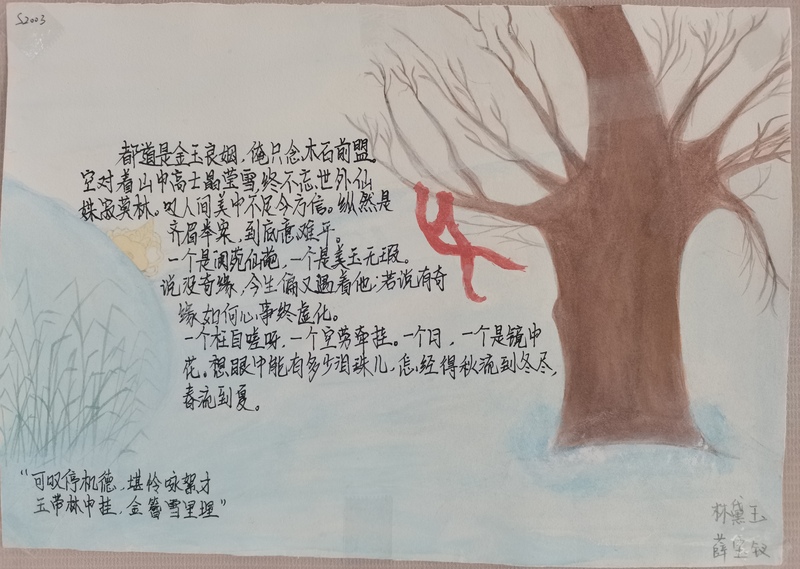 S2003
都道是金玉良姻,俺只念木石前盟。
空对着山中高士晶莹雪,终不忘世外仙
姝寂莫林。叹人间美中不足今方信。纵然是
齐眉举案,到底意难平。
一个是阆苑仙葩,一个是美玉无瑕。
说没奇缘,今生偏又遇着他;若说有奇
缘,如何心事终虚化。
一个枉自嗟呀,一个空劳牵挂。一个月,一个是镜中
花。想眼中能有多少泪珠儿,怎经得秋流到冬尽,
春流到夏。
"可叹停机德,堪伶咏絮才
玉带林中挂,金簪雪里埋"
林黛玉
薛宝钗